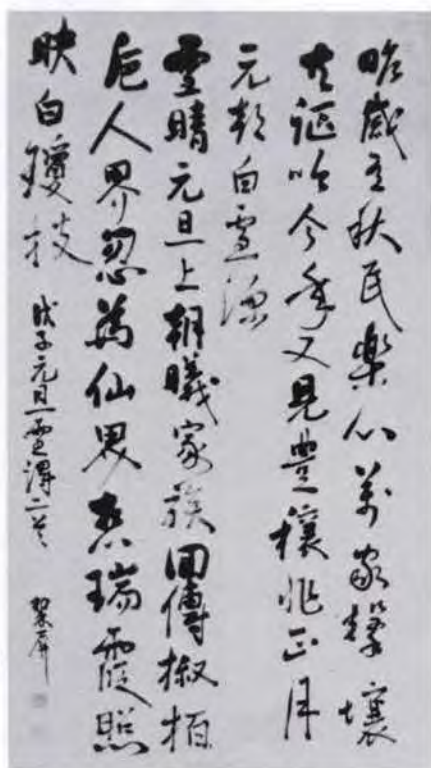 昨歳秋民楽心萬家撃壌
共謳吟今年又見豊穣兆正月
元朝白雪深
雪晴元旦上朝曦家族回傳椒柏
卮人界忽為仙界瑞霞照
映白瓊枝 戊子元旦雪澤二首 翠屏